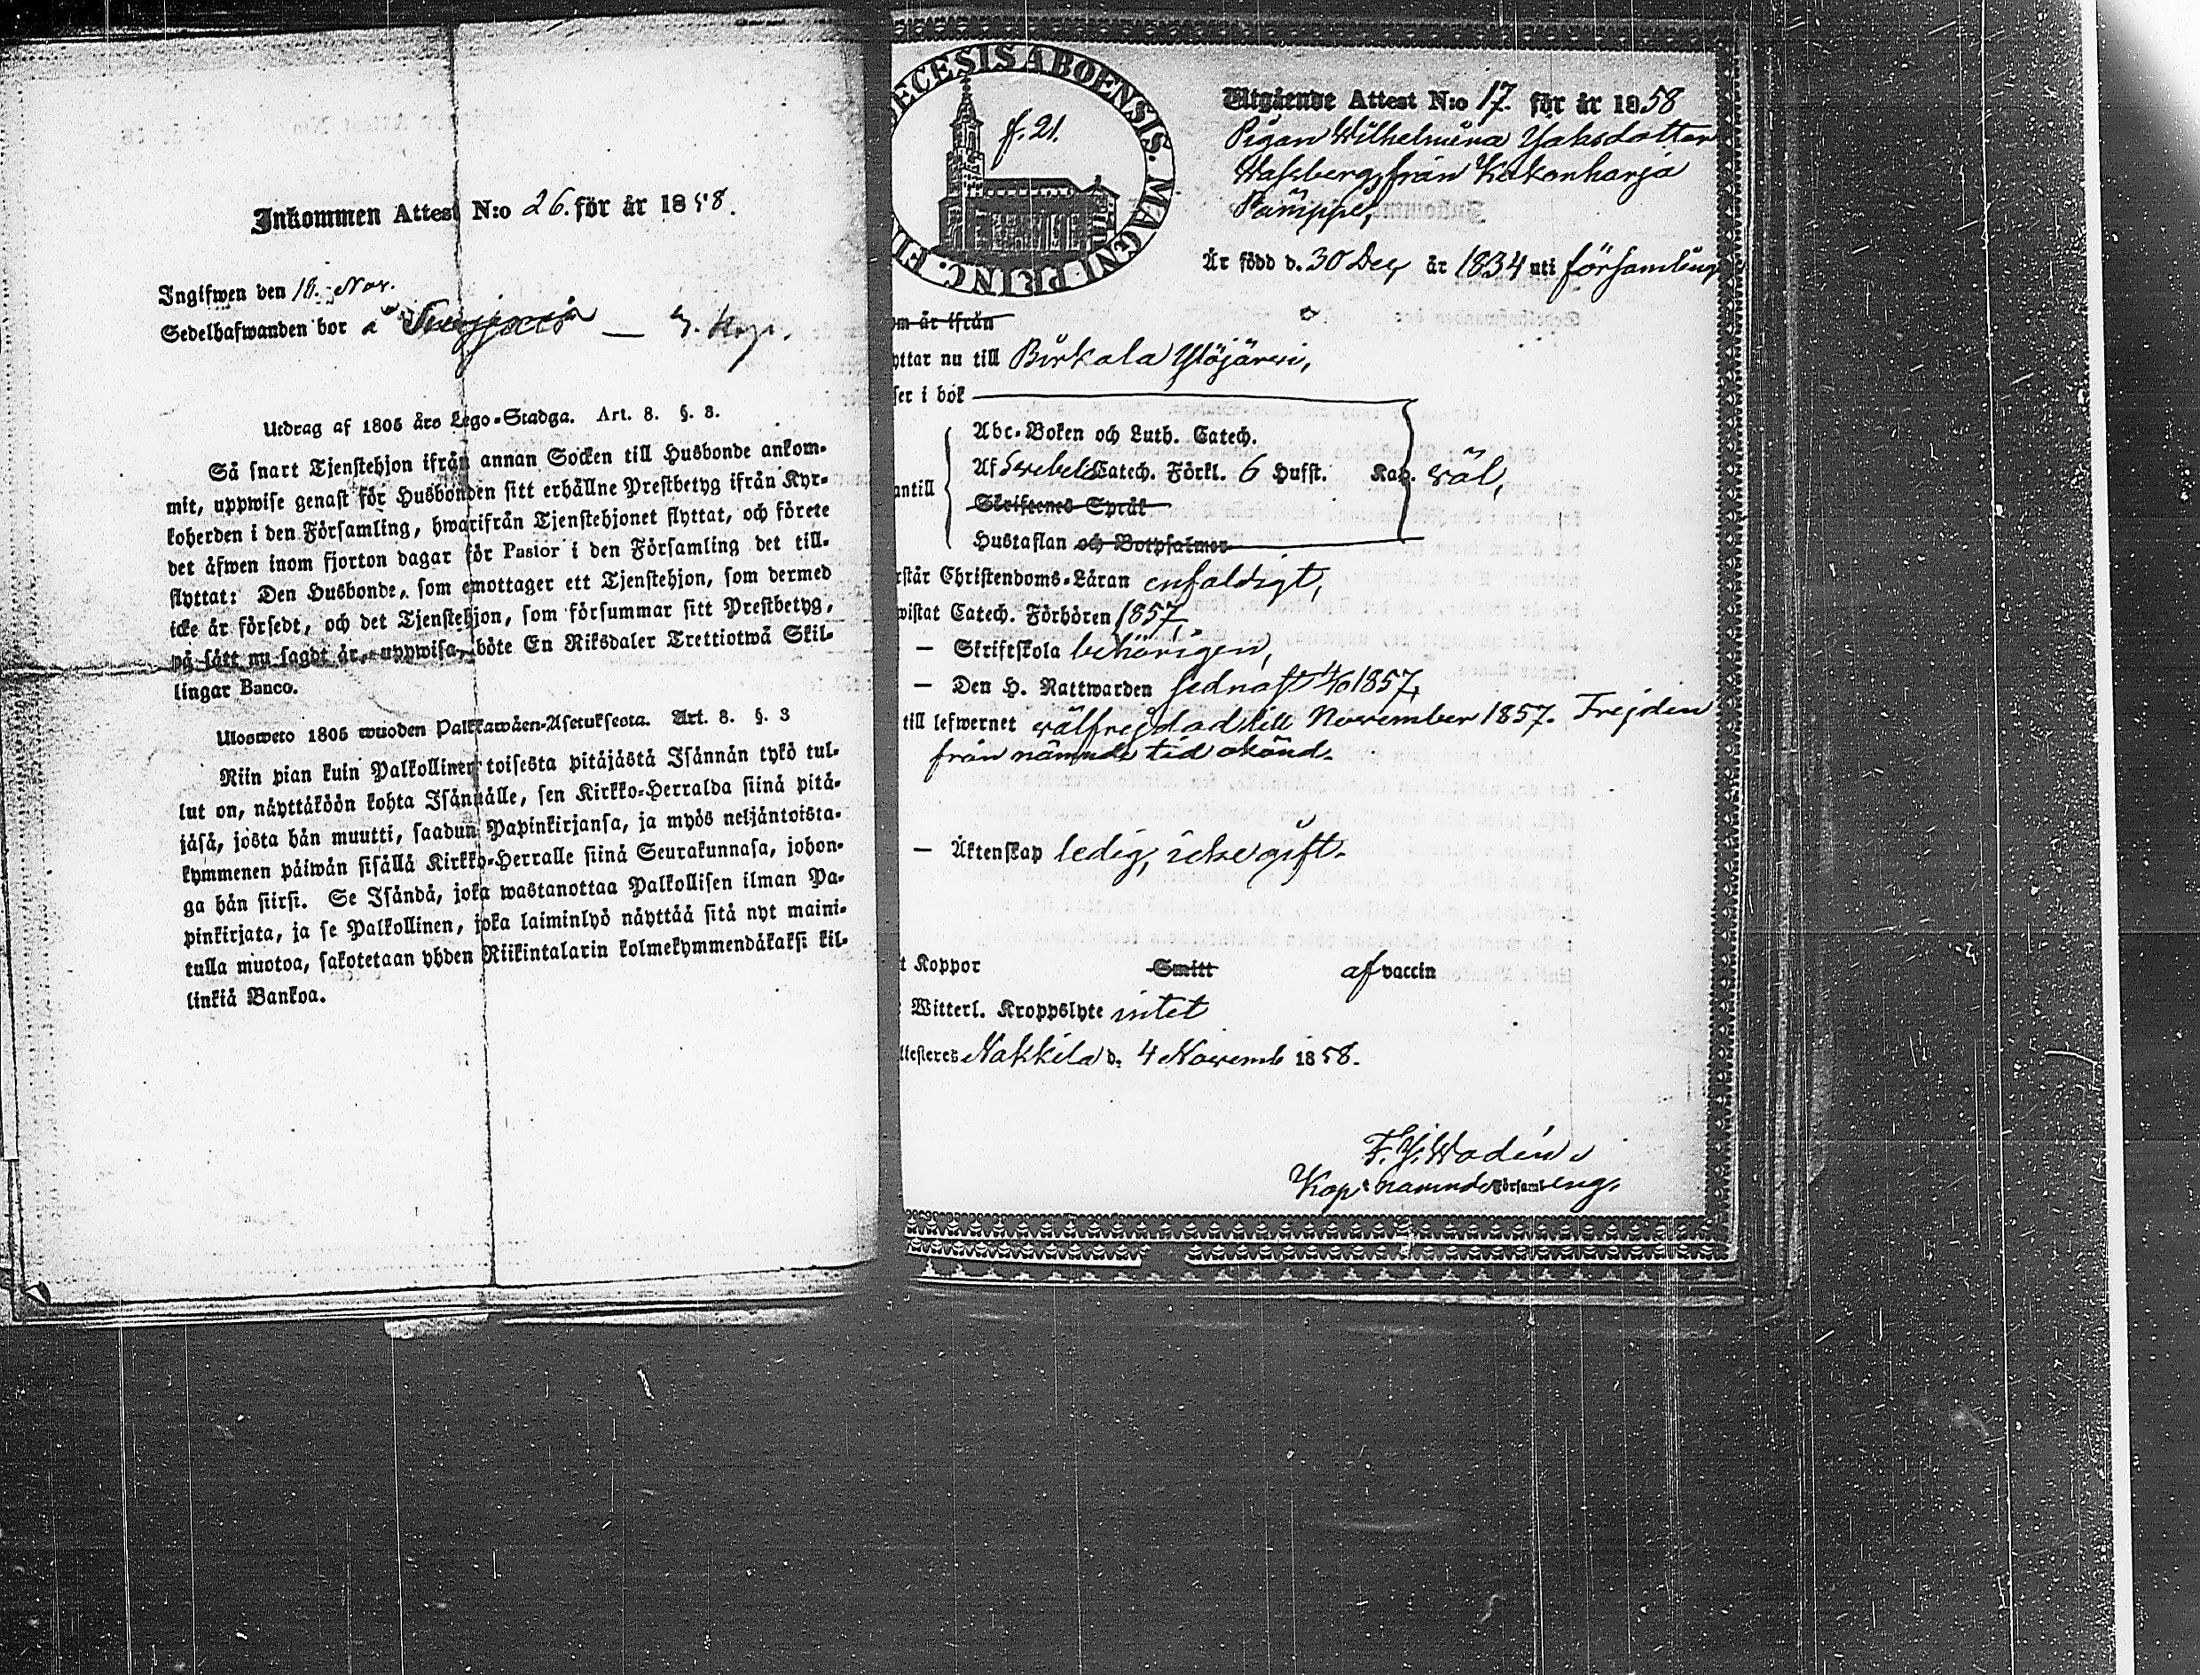 Inkommen Attest N:o 26. för år 1858.
Ingifwen den 18. Nov.
Sedelhafwanden bor å
Utdrag af 1805 års Lego-Stadga. Art. 8. §. 3.
Så snart Tjenstehjon ifrån annan Socken till Husbonde ankom-
mit, uppwise genast för Husbonden sitt erhållne Prestbetyg ifrån Kyr-
koherden i den Församling, hwarifrån Tjenstehjonet flyttat, och förete
det äfwen inom fjorton dagar för Pastor i den Församling det till-
flyttat: Den Husbonde, som emottager ett Tjenstehjon, som dermed
icke är försedt, och det Tjenstehjon, som försummar sitt Prestbetyg,
på sätt nu sagdt är, uppwisa, böte En Riksdaler Trettiotwå Skil-
lingar Banco.
Ulosweto 1805 wuoden Palkkawäen-Asetuksesta. Art. 8. §. 3
Niin pian kuin Palkollinen toisesta pitäjästä Isännän tykö tul-
lut on, näyttäköön kohta Isännälle, sen Kirkko-Herralda siinä pitä-
jäsä, josta hän muutti, saadun Papinkirjansa, ja myös neljäntoista-
kymmenen päiwän sisällä Kirkko-Herralle siinä Seurakunnasa, johon-
ga hän siirsi. Se Isändä, joka wastanottaa Palkollisen ilman Pa-
pinkirjata, ja se Palkollinen, joka laiminlyö näyttää sitä nyt maini-
tulla muotoa, sakotetaan yhden Riikintalarin kolmekymmendäkaksi kil-
linkiä Bankoa.
ECESIS ABOENSIS. MAGNI PRINC. FI
f. 21.
Utgående Attest N:o 17. för år 1858
Pigan Wilhelmina Jakobsdotter
Hassberg, från Kukonharja
Pämppe,
Är född d. 30 Dec, år 1834 uti församling
om är ifrån
yttar nu till Birkala Ylöjärvi,
ser i bok
Abc-Boken och Luth. Catech.
Af Serebelii Catech. Förkl. 6 Hufst. Kap. väl,
antill
Skriftenes Språk
Hustaflan och Botpsalmer
rstår Christendoms-Läran enfaldigt,
wistat Catech. Förhören 1857,
— Skriftskola behörigen,
— Den H. Nattwarden sednast 4/10 1857,
till lefwernet välfrejdad till November 1857. Frejden
från nämnde tid okänd.
— Äktenskap ledig, icke gift.
t Koppor Smitt af vaccin
Witterl. Kroppslyte intet
ttesteres Nakkila d. 4 Novemb 1858.
F. J. Wadén,
Kap. i nämnde Församling.